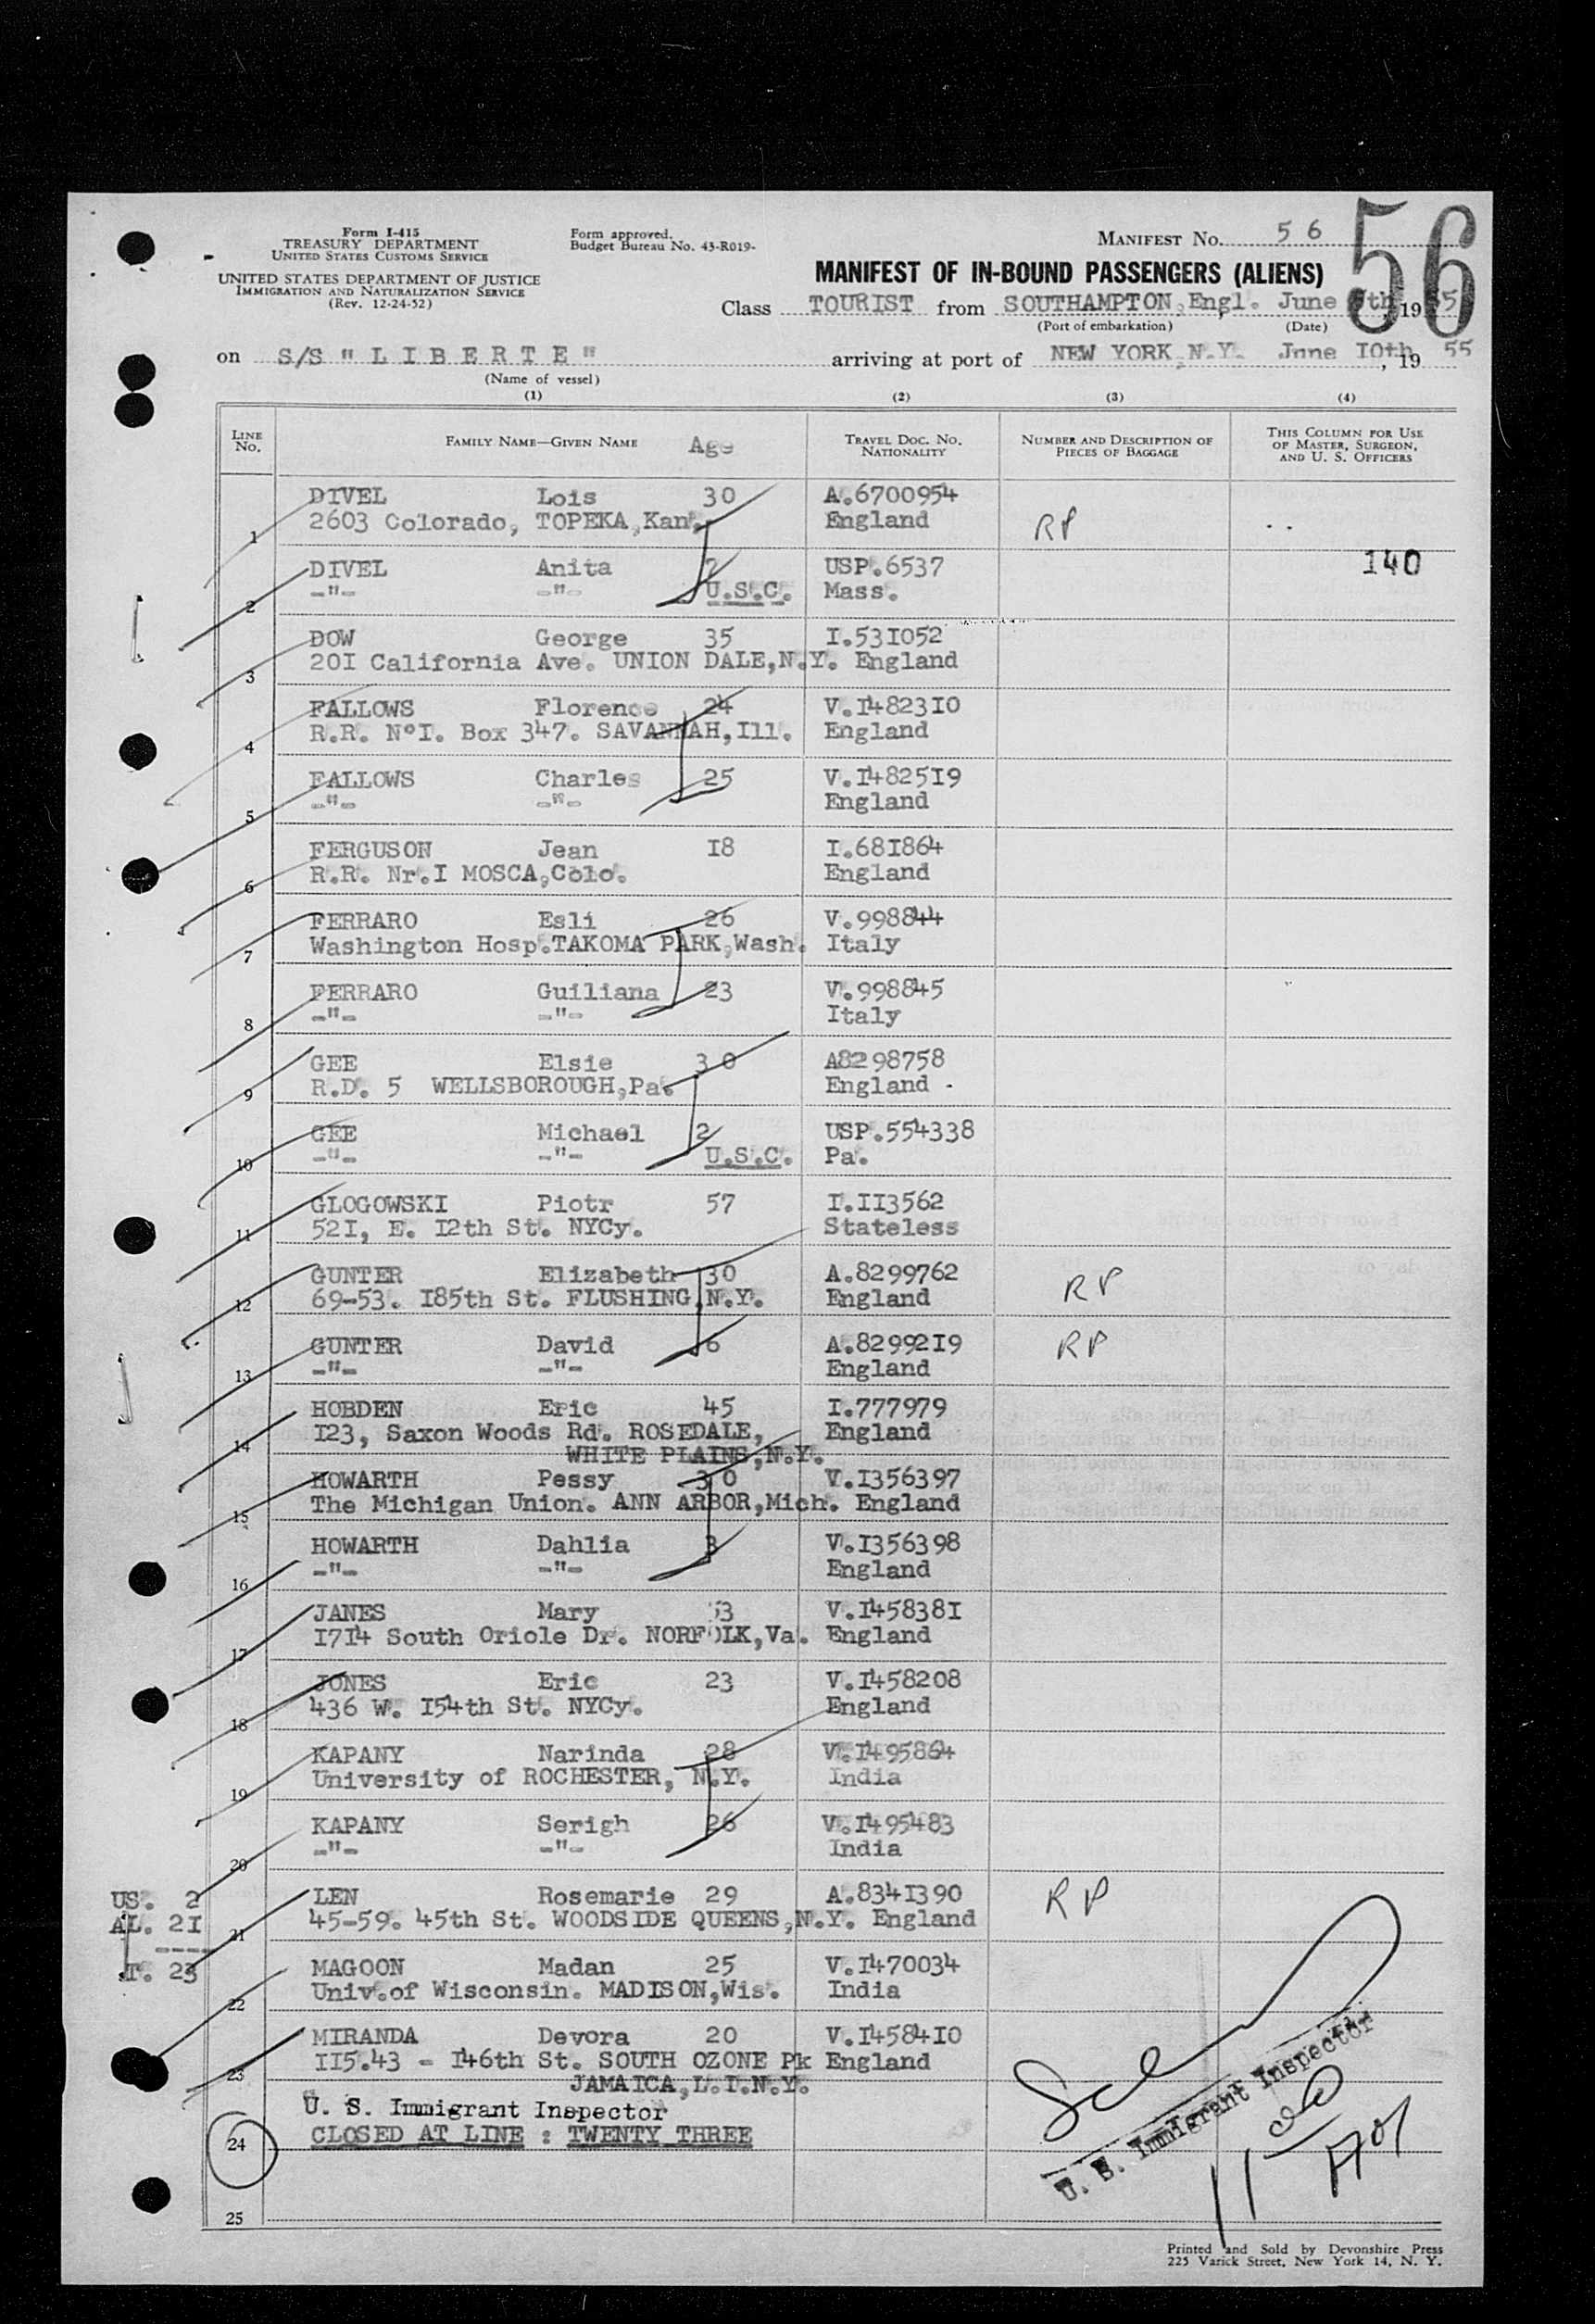 Form I-415
TREASURY DEPARTMENT
UNITED STATES CUSTOMS SERVICE
UNITED STATES DEPARTMENT OF JUSTICE
IMMIGRATION AND NATURALIZATION SERVICE
(Rev. 12-24-52)
Form approved.
Budget Bureau No. 43-R019-
MANIFEST No. 56
56
MANIFEST OF IN-BOUND PASSENGERS (ALIENS)
Class TOURIST from SOUTHAMPTON,Engl. June th, 19 5
(Port of embarkation) (Date)
on S/S "LIBERTE" arriving at port of NEW YORK,N.Y. June IOth, 19 55
(Name of vessel)
(1) (2) (3) (4)
LINE No. FAMILY NAME—GIVEN NAME Age TRAVEL DOC. NO. NATIONALITY NUMBER AND DESCRIPTION OF PIECES OF BAGGAGE THIS COLUMN FOR USE OF MASTER, SURGEON, AND U. S. OFFICERS
1 DIVEL Lois 30 A.6700954
2603 Colorado, TOPEKA,Kan. England RP
2 DIVEL Anita 2 USP.6537 140
-"- -"- U.S.C. Mass.
3 DOW George 35 I.53I052
20I California Ave. UNION DALE,N.Y. England
4 FALLOWS Florence 24 V.I4823I0
R.R. N°I. Box 347. SAVANNAH,Ill. England
5 FALLOWS Charles 25 V.I4825I9
-"- -"- England
6 FERGUSON Jean I8 I.68I864
R.R. Nr.I MOSCA,Colo. England
7 FERRARO Esli 26 V.998844
Washington Hosp.TAKOMA PARK,Wash. Italy
8 FERRARO Guiliana 23 V.998845
-"- -"- Italy
9 GEE Elsie 30 A8298758
R.D. 5 WELLSBOROUGH,Pa. England
10 GEE Michael 2 USP.554338
-"- -"- U.S.C. Pa.
11 GLOGOWSKI Piotr 57 I.II3562
52I, E. I2th St. NYCy. Stateless
12 GUNTER Elizabeth 30 A.8299762
69-53. I85th St. FLUSHING,N.Y. England RP
13 GUNTER David 6 A.82992I9 RP
-"- -"- England
14 HOBDEN Eric 45 I.777979
I23, Saxon Woods Rd. ROSEDALE, England
WHITE PLAINS,N.Y.
15 HOWARTH Pessy 30 V.I356397
The Michigan Union. ANN ARBOR,Mich. England
16 HOWARTH Dahlia 3 V.I356398
-"- -"- England
17 JANES Mary 3 V.I45838I
I7I4 South Oriole Dr. NORFOLK,Va. England
18 JONES Eric 23 V.I458208
436 W. I54th St. NYCy. England
19 KAPANY Narinda 28 V.I495864
University of ROCHESTER, N.Y. India
20 KAPANY Serigh 26 V.I495483
-"- -"- India
US. 2
AL. 2I
----
T. 23
21 LEN Rosemarie 29 A.834I390 RP
45-59. 45th St. WOODSIDE QUEENS,N.Y. England
22 MAGOON Madan 25 V.I470034
Univ.of Wisconsin. MADISON,Wis. India
23 MIRANDA Devora 20 V.I4584I0
II5.43 - I46th St. SOUTH OZONE Pk England
JAMAICA,L.I.N.Y.
U. S. Immigrant Inspector
24 CLOSED AT LINE : TWENTY THREE
U. S. Immigrant Inspector
25
Printed and Sold by Devonshire Press
225 Varick Street, New York 14, N. Y.